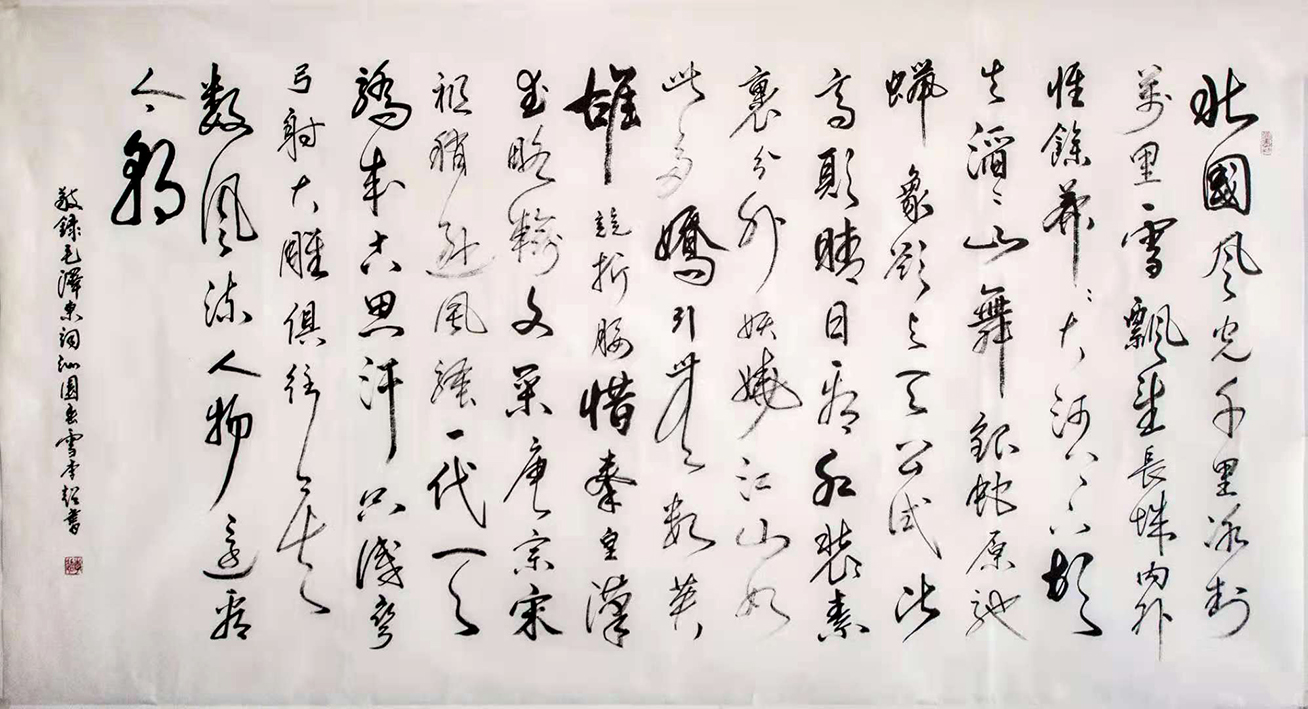 北國風光千里冰封
萬里雪飄望長城内外
惟餘莽〻大河上下頓
失滔〻山舞銀蛇原馳
蠟象欲与天公试比
高須晴日看紅裝素
裹分外妖嬈江山如
此多嬌引無數英
雄競折腰惜秦皇漢
武略輸文采唐宗宋
祖稍遜風騷一代天
驕成吉思汗只識彎
弓射大雕俱往矣
數風流人物還看
今朝
敬録毛澤東詞沁園春雪李超書